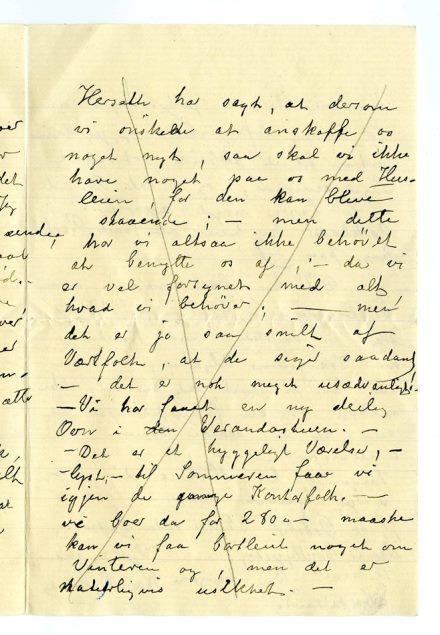 Herseth har sagt, at dersom
vi önskede at anskaffe os
noget nyt, saa skal vi ikke
have noget paa os med Hus-
leien, for den kan blive
staaende; – men dette
har vi altsaa ikke behövet
at benytte os af, – da vi
er vel forsynet med alt
hvad vi behöver, — men
det er jo saa snilt af
Værtfolk, at de siger saadant
– det er nok meget usædvanligt.
– Vi har faaet en ny deilig
Ovn i den Verandastuen. –
– Det er et hyggeligt Værelse, –
lyst; – til Sommeren faar vi
igjen de Kontorfolk. –
vi boer da for 280 – maaske
kan vi faa bortleiet noget om
Vinteren og, men det er
naturligvis usikkert. –